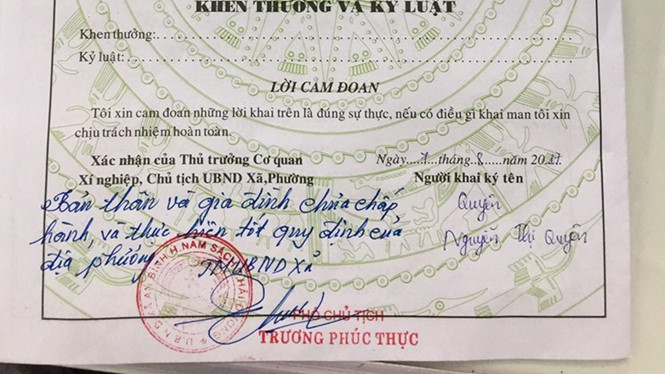 KHEN THƯỞNG VÀ KỶ LUẬT
Khen thưởng:
Kỷ luật:
LỜI CAM ĐOAN
Tôi xin cam đoan những lời khai trên là đúng sự thực, nếu có điều gì khai man tôi xin
chịu trách nhiệm hoàn toàn.
Xác nhận của Thủ trưởng Cơ quan
Xí nghiệp, Chủ tịch UBND Xã,Phường
Ngày 1 tháng 8 năm 2017
Người khai ký tên
Bản thân và gia đình chưa chấp
hành, và thực hiện tốt quy định của
địa phương
TM UBND Xã
Quyên
Nguyễn Thị Quyên
U.B.N.D XÃ AN BÌNH H.NAM SÁCH T.HẢI DƯƠNG
PHÓ CHỦ TỊCH
TRƯƠNG PHÚC THỰC